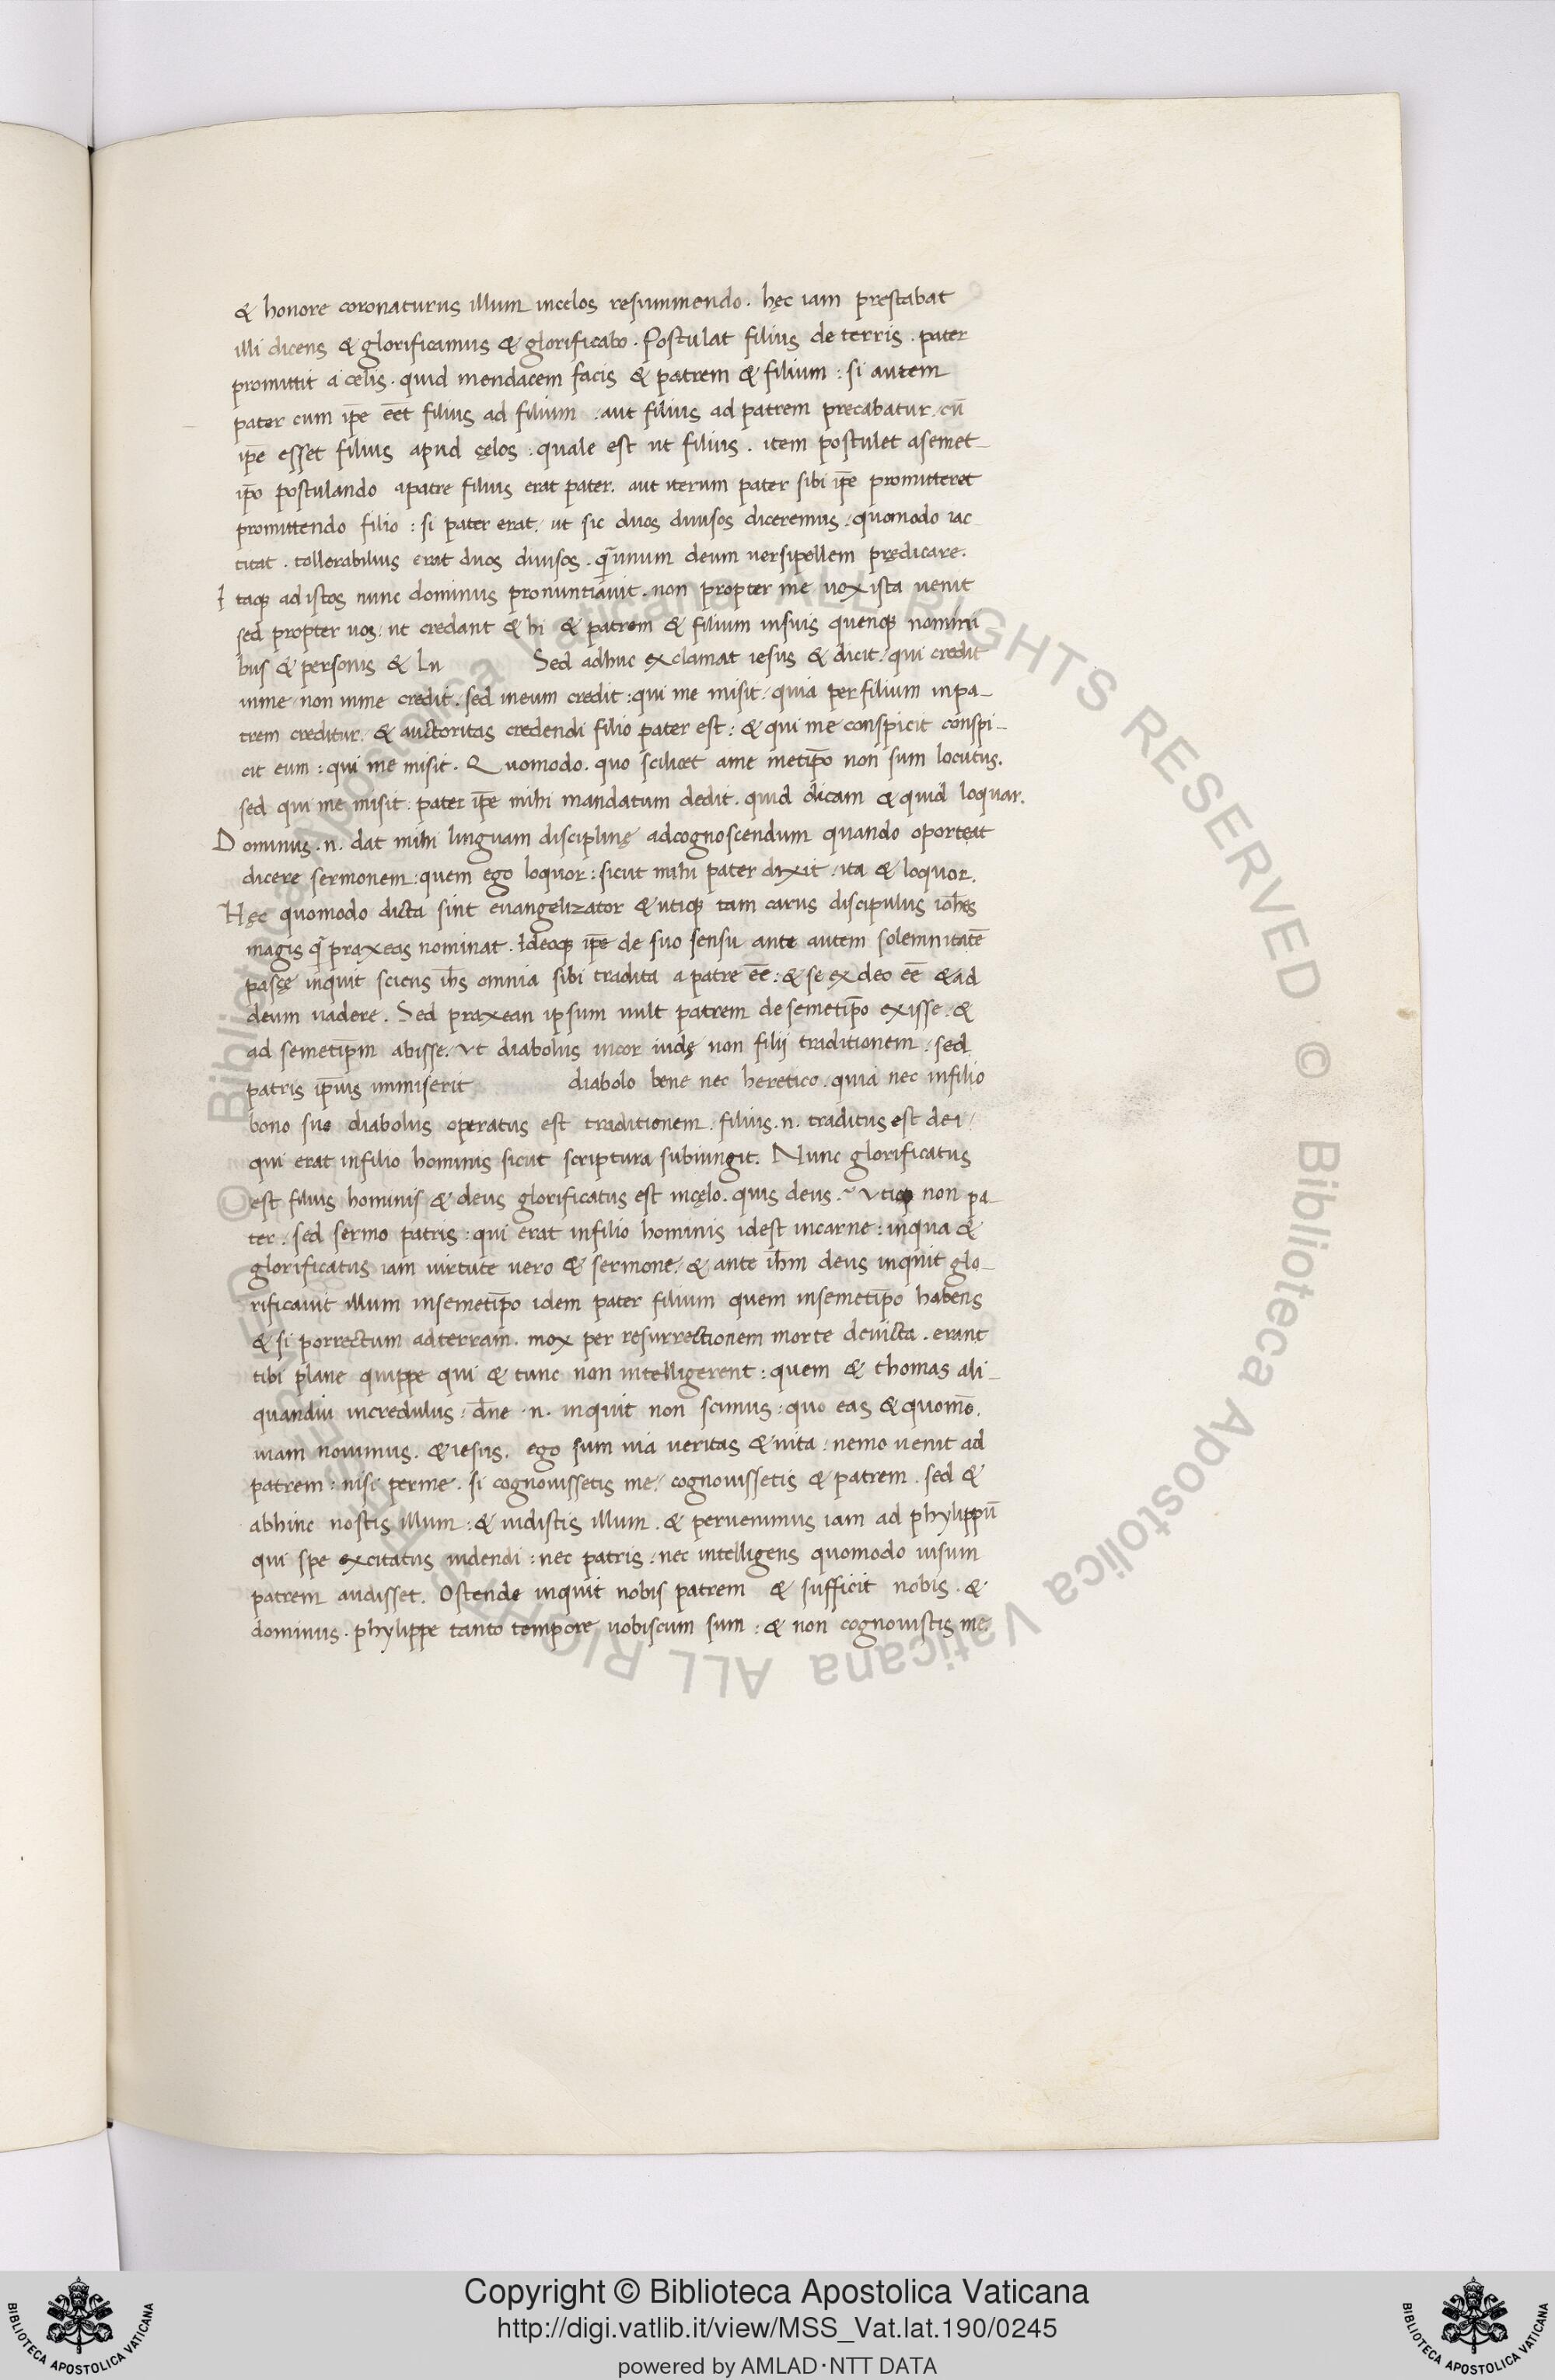 & honore coronaturus illum incelos resummendo. hęc iam prestabat
illi dicens & glorificamus & glorificabo. Postulat filius de terris. pater
promittit a celis. quid mendacem facis & patrem & filium: si autem
pater cum ip̄e eēt filius ad filium. aut filius ad patrem precabatur. cū
ip̄e esset filius apud cęlos: quale est ut filius. item postulet asemet-
ip̄o postulando apatre filius erat pater. aut iterum pater sibi ip̄e promitteret
promittendo filio: si pater erat. ut sic duos diuisos diceremus. quomodo iac
titat. tollerabilius erat duos diuisos. q̄unum deum uersipellem prędicare.
Itaq; ad istos nunc dominus pronuntiauit. non propter me uox ista uenit
sed propter uos. ut credant & hi & patrem & filium insuis quenq; nomini
bus & personis & Lu Sed adhuc exclamat iesus & dicit. qui credit
inme non inme credit. sed ineum credit: qui me misit. quia per filium inpa-
trem creditur. & auctoritas credendi filio pater est: & qui me conspicit conspi-
cit eum: qui me misit. Quomodo. quo scilicet ame metip̄o non sum locutus.
sed qui me misit. pater ip̄e mihi mandatum dedit. quid dicam & quid loquar.
Dominus .n. dat mihi linguam disciplinę adcognoscendum quando oporteat
dicere sermonem: quem ego loquor: sicut mihi pater dixit. ita & loquor.
Hęc quomodo dicta sint euangelizator & utiq; tam carus discipulus ioh̄es
magis q̄ praxeas nominat. Ideoq; ip̄e de suo sensu ante autem solemnitatē
pascę inquit sciens ih̄s omnia sibi tradita a patre eē: & se ex deo eē & ad
deum uadere. Sed praxean ipsum uult patrem de semetip̄o exisse. &
ad semetip̄m abisse. Vt diabolus incor iudę non filii traditionem. sed
patris ip̄ius immiserit diabolo bene nec heretico. quia nec infilio
bono suo diabolus operatus est traditionem. filius .n. traditus est dei
qui erat infilio hominis sicut scriptura subiungit. Nunc glorificatus
est filius hominis & deus glorificatus est incęlo. quis deus. Vtiq; non pa-
ter. sed sermo patris: qui erat infilio hominis idest incarne: inqua &
glorificatus iam uirtute uero & sermone. & ante ih̄m deus inquit glo-
rificauit illum insemetip̄o idem pater filium quem insemetip̄o habens
& si porrectum adterram. mox per resurrectionem morte deuicta. erant
tibi plane quippe qui & tunc non intelligerent: quem & thomas ali-
quandiu incredulus: d̄ne .n. inquit non scimus: quo eas & quomō.
uiam nouimus. & iesus. ego sum uia ueritas & uita: nemo uenit ad
patrem: nisi perme. si cognouissetis me. cognouissetis & patrem. sed &
abhinc nostis illum: & uidistis illum. & peruenimus iam ad phylippū
qui spe excitatus uidendi: nec patris. nec intelligens quomodo uisum
patrem audisset. Ostende inquit nobis patrem & sufficit nobis. &
dominus. phylippe tanto tempore uobiscum sum: & non cognouistis me.
© Biblioteca Apostolica Vaticana ALL RIGHTS RESERVED © Biblioteca Apostolica Vaticana ALL RIGHTS RESERVED
Copyright © Biblioteca Apostolica Vaticana
http://digi.vatlib.it/view/MSS_Vat.lat.190/0245
powered by AMLAD·NTT DATA
BIBLIOTECA APOSTOLICA VATICANA
BIBLIOTECA APOSTOLICA VATICANA